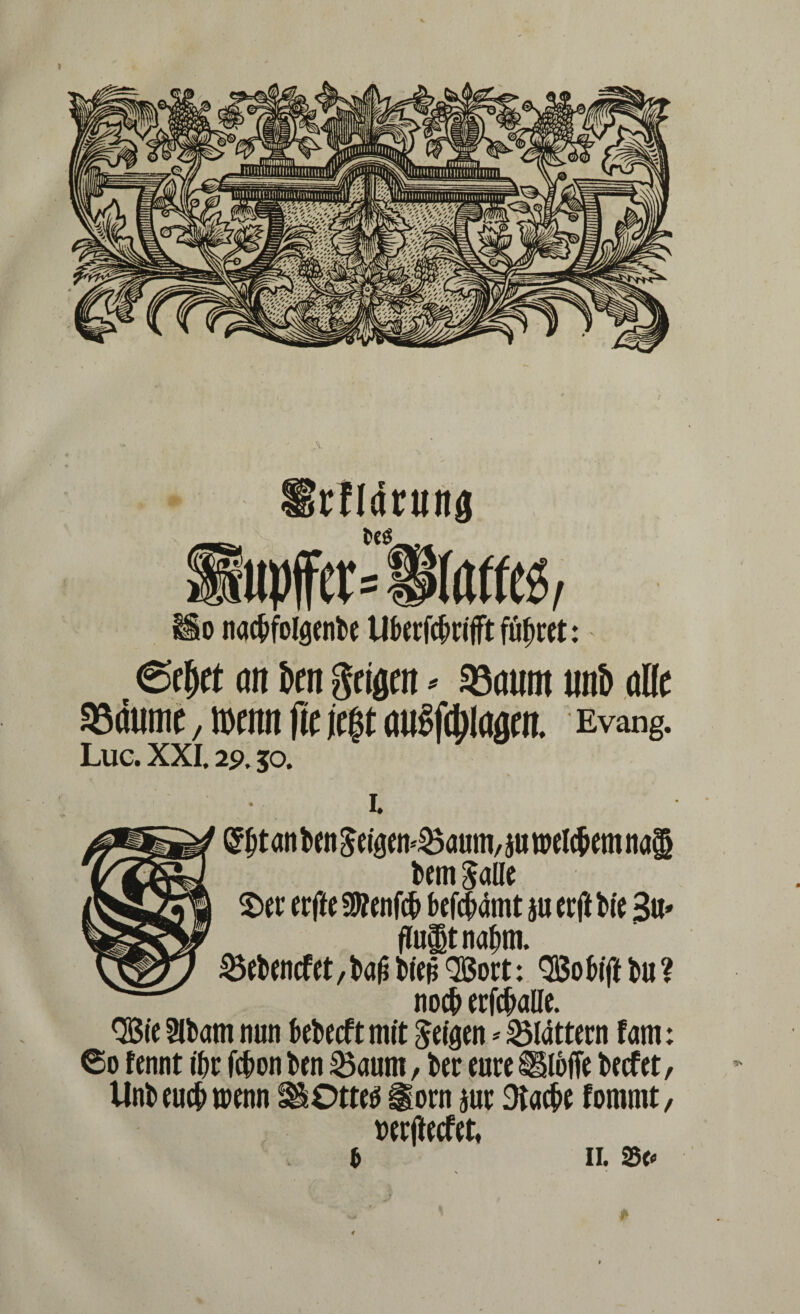 Erklärung
deß
Kupffer=Blattes,
So nachfolgende Uberschrifft führet:
Sehet an den Feigen=Baum und alle
Bäume / wenn sie jetzt außschlagen. Evang.
Luc. XXI. 29. 30.
I.
SEht an den Feigen=Baum / zu welchem nach
dem Falle
Der erste Mensch beschämt zu erst die Zu=
flucht nahm.
Bedencket / daß dieß Wort: Wo bist du?
noch erschalle.
Wie Adam nun bedeckt mit Feigen=Blättern kam:
So kennt ihr schon den Baum / der eure Blösse decket /
Und euch wenn GOttes Zorn zur Rache kommt /
verstecket.
b
II. Be=